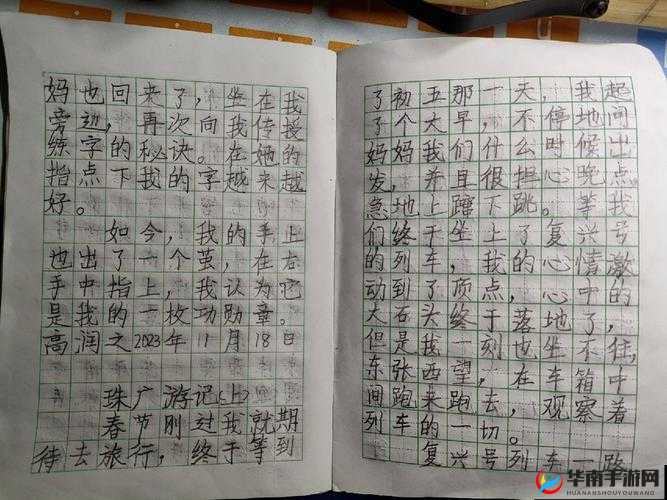 妈也回来了，坐在我
旁边，再次向我传授
练字的秘诀。在她的
指点下我的字越来越
好。
如今，我的手上
也出了一个茧，在右
手中指上，我认为它
是我的一枚功勋章。
高润之2023年11月18日
珠广游记(上)
春节刚过我就期
待去旅行，终于等到
了初五那一天，我起
了个大早，不停地问
妈妈我们什么时候出
发，并且很担心晚点。
急地上蹿下跳。等我
们终于坐上了复兴号
的列车，我的心情激
动到了顶点，心中的
大石头终于落地了，
但是我一刻也坐不住，
东张西望，在车箱中
间跑来跑去，观察着
列车的一切。
复兴号列车一路
华南手游网